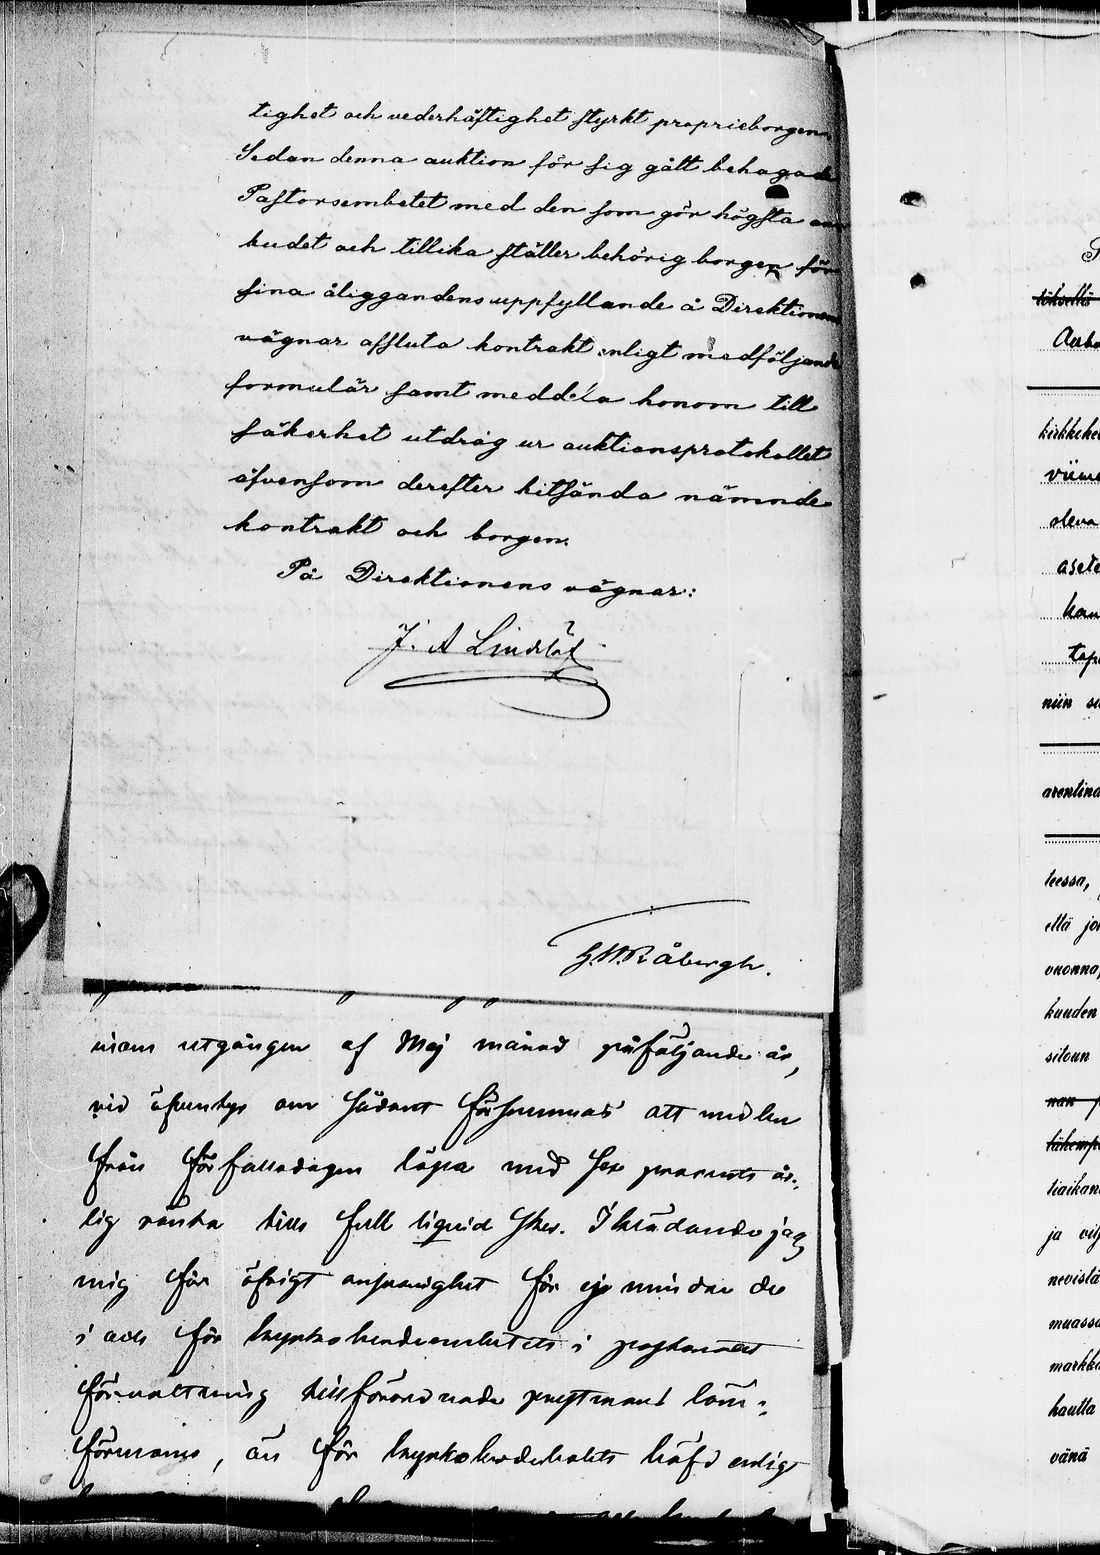 tighet och vederhäftighet styrkt proprieborgen.
Sedan denna auktion för sig gått behagade
Pastorsembetet med den som gör högsta an
budet och tillika ställer behörig borgen för
sina åliggandens uppfyllande å Direktionens
vägnar afsluta kontrakt enligt medföljande
formulär samt meddela honom till
säkerhet utdrag ur auktionsprotokollet
äfvensom derefter hitsända nämnde
kontrakt och borgen.
På Direktionens vägnar:
J. A Lindelöf
G.W.Råbergh.
inom utgången af Maj månad påföljande år,
vid äfventyr om sådant försummas att medlen
från förfallodagen löpa med sex procents år-
lig ränta tills full liquid sker. Iklädande jag
mig för öfrigt ansvarighet för ej mindre de
i och för kyrkoherdeembetets i pastoratet
förvaltning tillförordnade prestmans löne-
förmåner, än för kyrkoherdebolets häfd enligt
Aabo
kirkkohe
viime
oleva
asete
kan
tope
niin su
arentina
teessa,
että jo
vuonna,
kuuden
sitoun
nan p
lähemp
tiaikan
ja vil
nevistä
muassa
markka
hautta
vänä